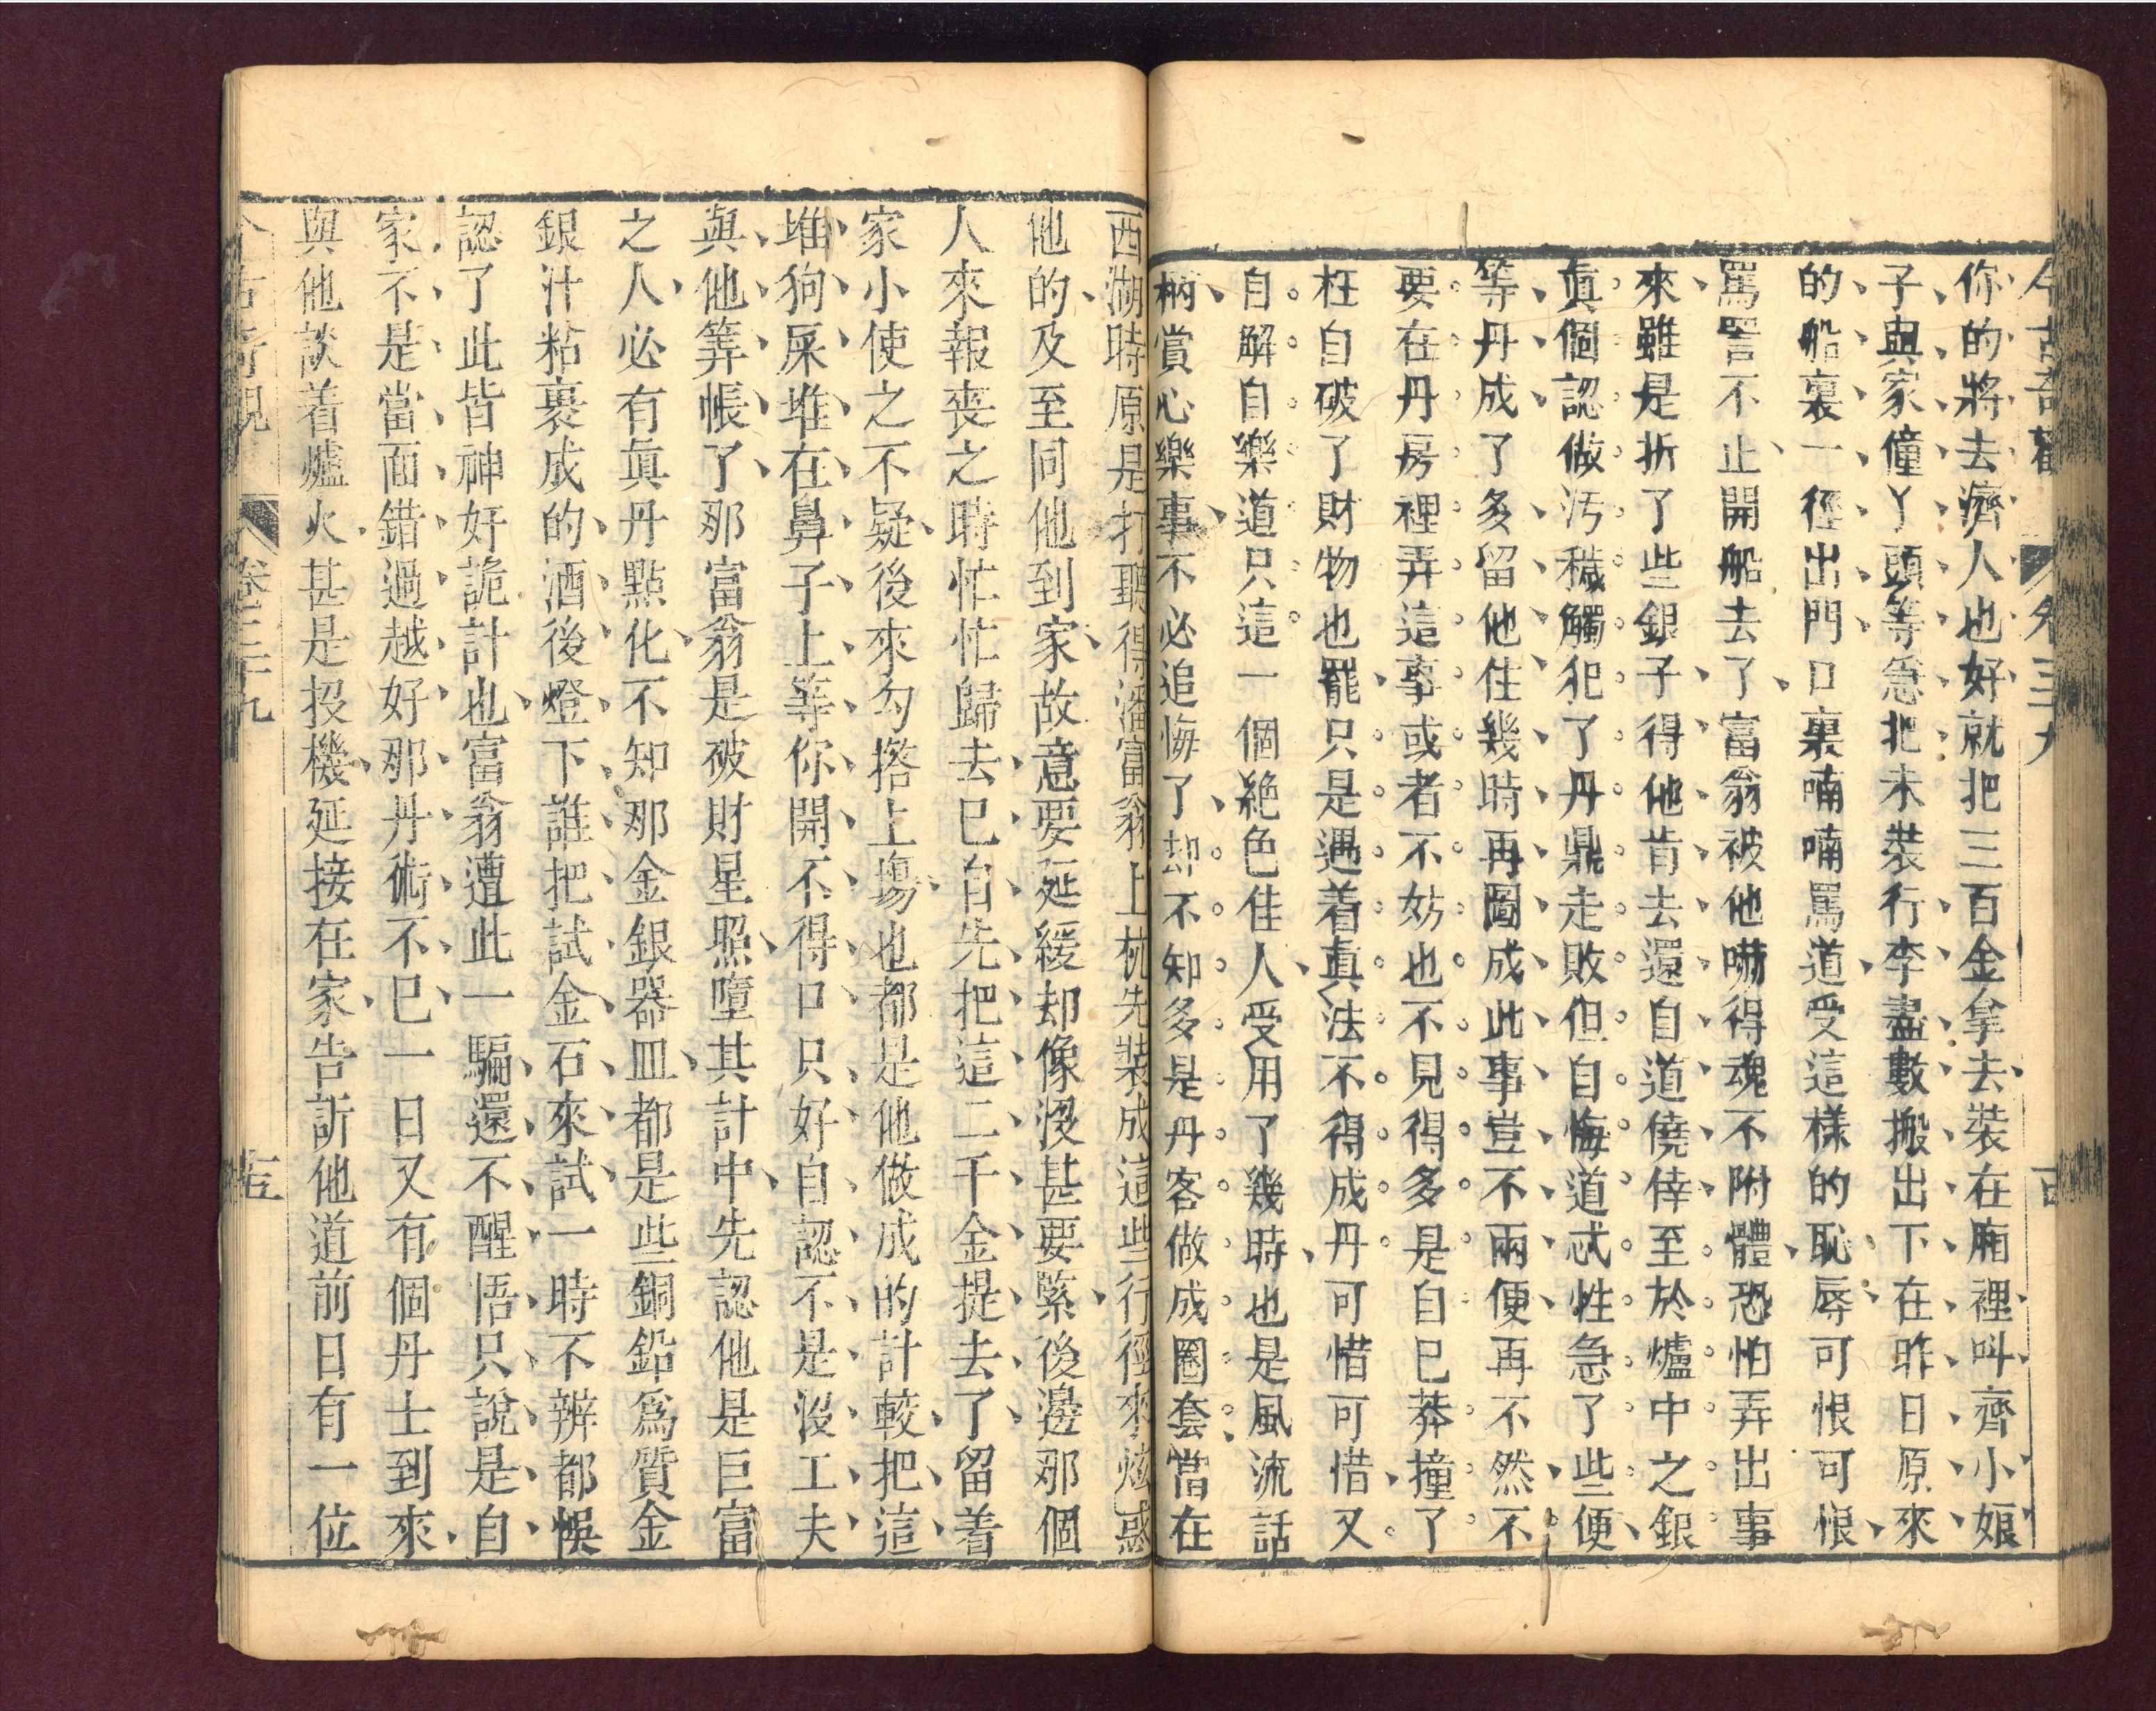 今古奇觀 卷三九
你的將去濟人也好就把三百金拿去裝在廂裡叫齊小娘
子與家僮丫頭等急把未裝行李盡數搬出下在昨日原來
的船裏一徑出門口裏喃喃罵道受這樣的恥辱可恨可恨
罵詈不止開船去了富翁被他嚇得魂不附體恐怕弄出事
來雖是折了些銀子得他肯去還自道僥倖至於爐中之銀
真個認做污穢觸犯了丹鼎走敗但自悔道忒性急了些便
等丹成了多留他住幾時再圖成此事豈不兩便再不然不
要在丹房裡弄這事或者不妨也不見得多是自已莽撞了
枉自破了財物也罷只是遇着真法不得成丹可惜可惜又
自解自樂道只這一個絶色佳人受用了幾時也是風流話
柄賞心樂事不必追悔了却不知多是丹客做成圈套當在
西湖時原是打聽得潘富翁上杭先裝成這些行徑來炫惑
他的及至同他到家故意要延緩却像没甚要緊後邊那個
人來報喪之時忙忙歸去已自先把這二千金提去了留着
家小使之不疑後來勾搭上塲也都是他做成的計較把這
堆狗屎堆在鼻子上等你開不得口只好自認不是没工夫
與他筭帳了那富翁是破財星照墮其計中先認他是巨富
之人必有真丹點化不知那金銀器皿都是些銅鉛爲質金
銀汁粘裹成的酒後燈下誰把試金石來試一時不辨都悞
認了此皆神奸詭計也富翁遭此一騙還不醒悟只說是自
家不是當面錯過越好那丹術不已一日又有個丹士到來
與他談着爐火甚是投機延接在家告訴他道前日有一位
今古奇觀 卷三十九 十五